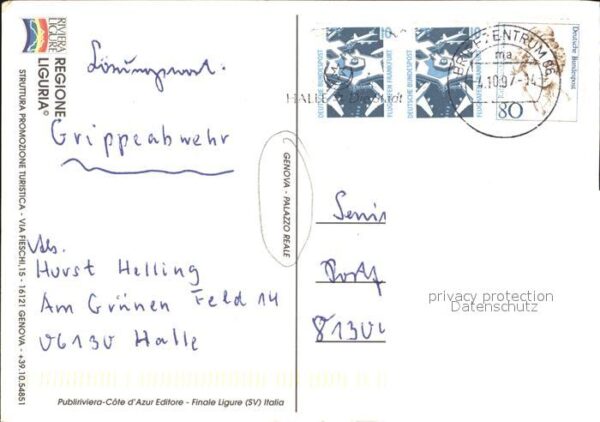 RIVIERA
LIGURE
REGIONE
LIGURIA©
STRUTTURA PROMOZIONE TURISTICA - VIA FIESCHI,15 - 16121 GENOVA - +39.10.54851
Lösungswort:
Grippeabwehr
Abs.
Horst Helling
Am Grünen Feld 14
06130 Halle
Publiriviera-Côte d'Azur Editore - Finale Ligure (SV) Italia
GENOVA - PALAZZO REALE
10
DEUTSCHE BUNDESPOST
FLUGHAFEN FRANKFURT
10
DEUTSCHE BUNDESPOST
FLUGHAFEN FRANKFURT
Deutsche Bundespost
80
BRIEFZENTRUM 06
ma
.10.97.-14
HALLE
Seni
Postf
8130
privacy protection
Datenschutz